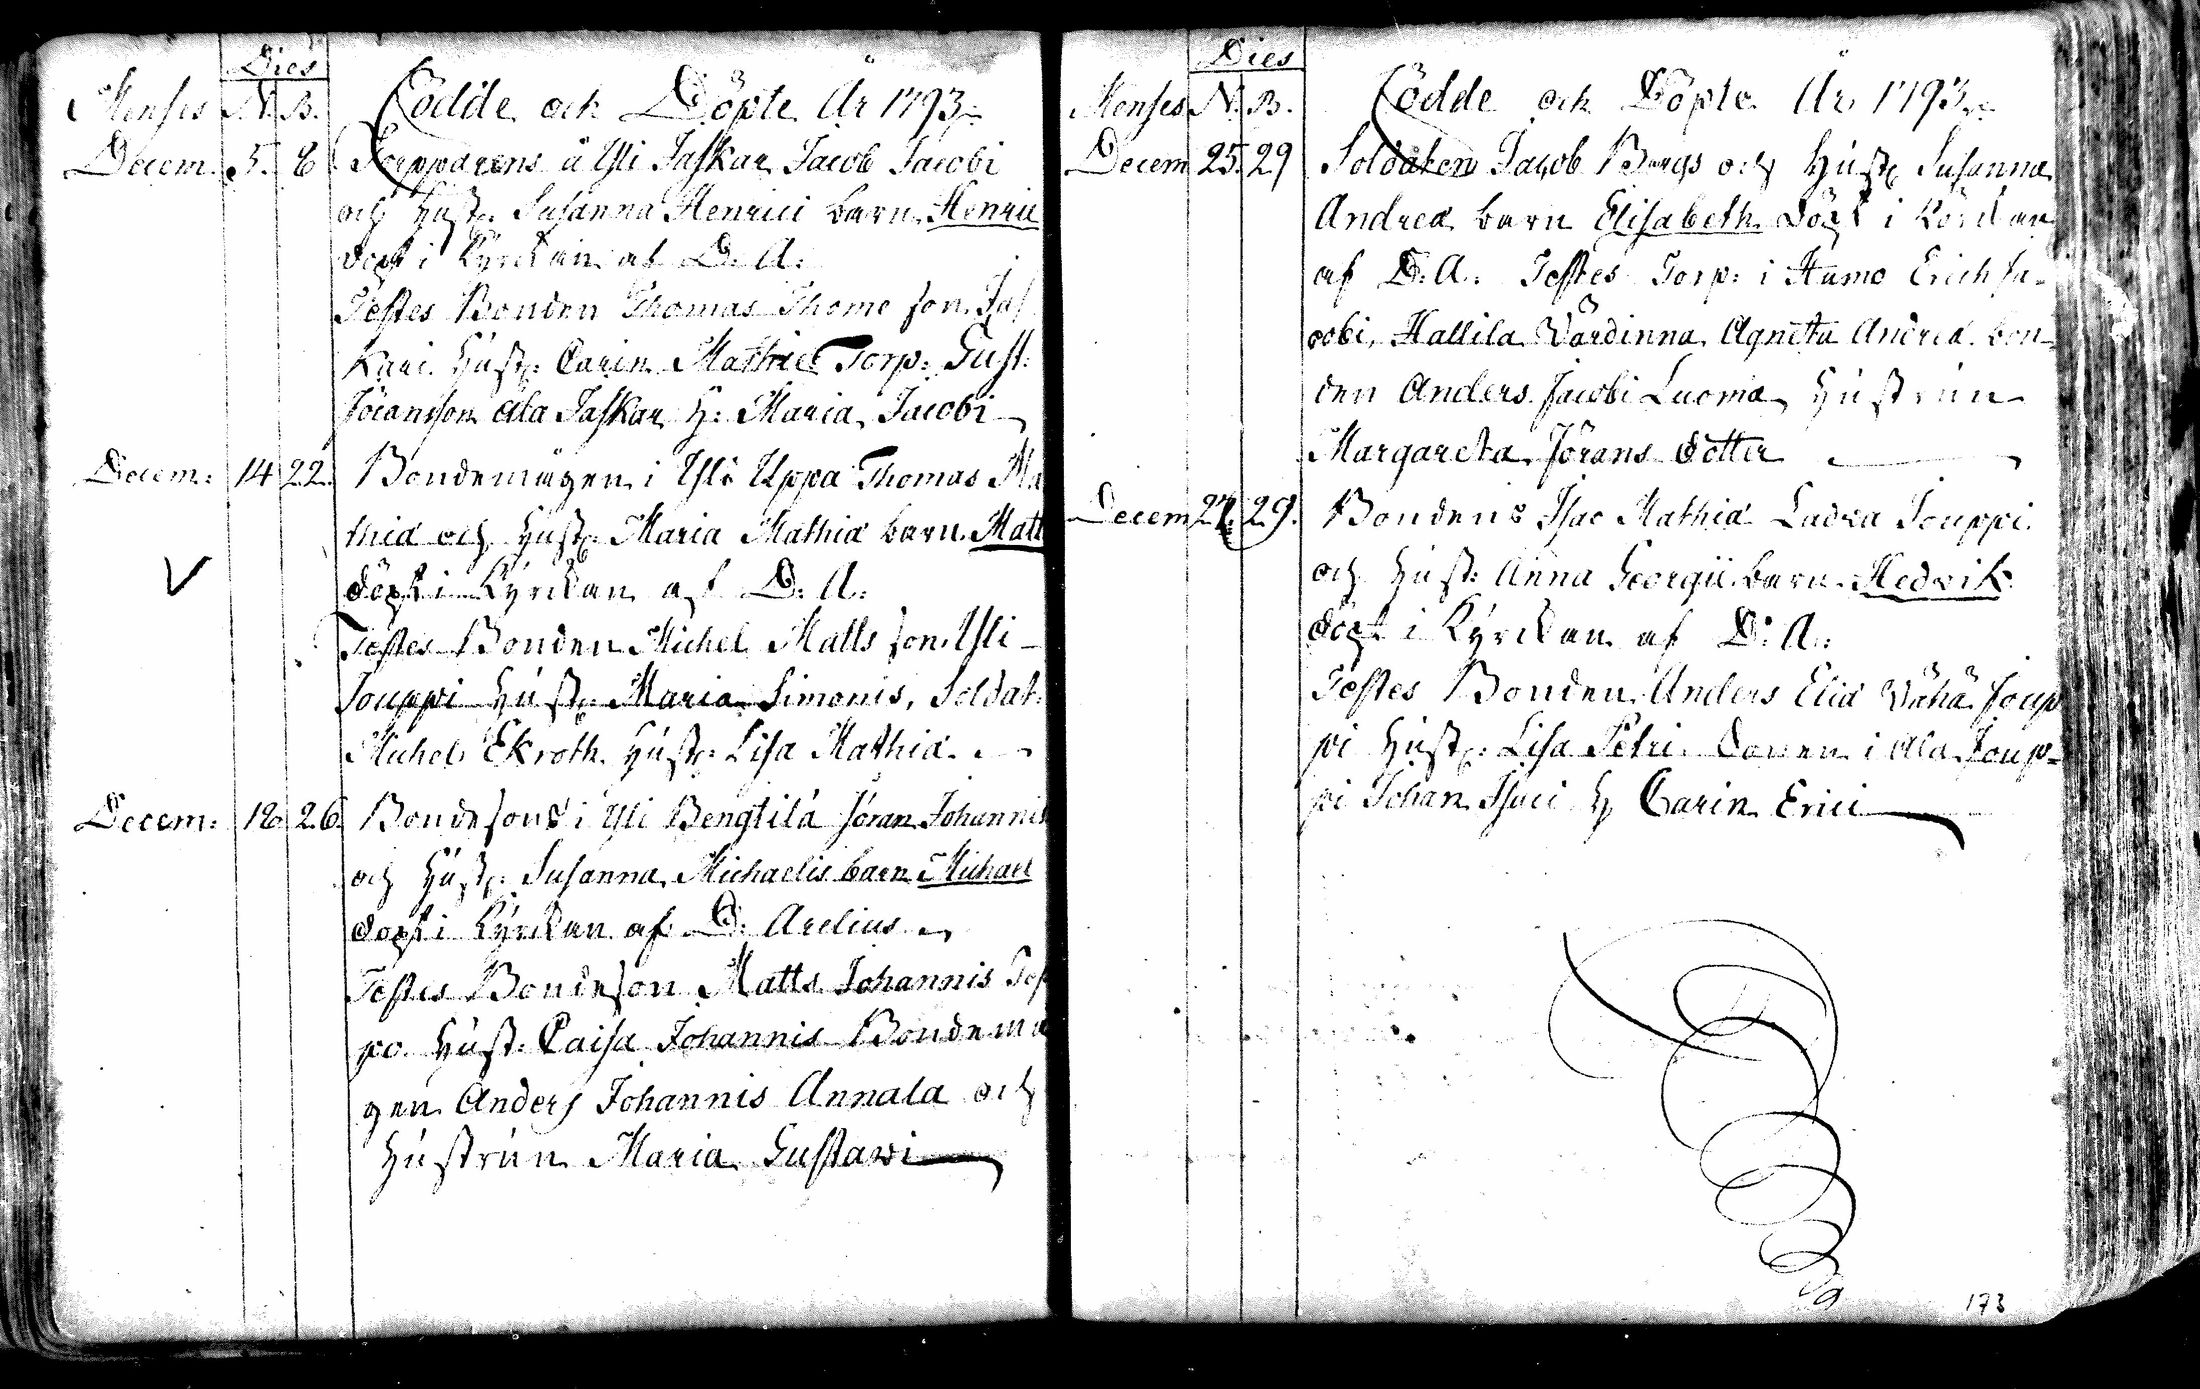 Dies
Menses N. B. Födde och Döpte År 1793.
Decem. 5. 8 Torpparens å Yli Jaskar Jacob Jacobi
och Hust: Susanna Henrici barn Henric
döpt i Kyrckan af D: A:
Testes Bonden Thomas Thome son Jas
kari Hust: Carin Mathiæ Torp: Gust:
Jöransson Ala Jaskar H: Maria Jacobi
Decem: 14 22. Bondemågen i Yli Uppa Thomas Ma
thiæ och Hust: Maria Mathiæ barn Matt
döpt i Kyrckan af D: A:
Testes Bonden Michel Matts son Yli
Jouppi Hust: Maria Simonis, Soldat:
Michel Ekroth Hust: Lisa Mathiæ.
Decem: 18 26. Bondesons i Yli Bengtilä Jöran Johannis
och Hust: Susanna Michaelis barn Michael
döpt i Kyrckan af D: Arelius
Testes Bondeson Matts Johannis
po Hust: Caisa Johannis Bondemå
gen Anders Johannis Annala och
Hustrun Maria Gustawi
Dies
Menses N. B. Födde och Döpte År 1793.
Decem 25. 29 Soldaten Jacob Bergs och Hust: Susanna
Andreæ barn Elisabeth döpt i Kyrckan
af D: A: Testes Torp: i Humo Erich Ja-
cobi, Hallila Värdinna Agneta Andreæ bon-
den Anders Jacobi Luoma Hustrun
Margareta Jörans dotter
Decem 27. 29. Bondens Isac Mathiæ Ladva Jouppi
och Hust: Anna Georgii barn Hedvik
döpt i Kyrckan af D: A:
Testes Bonden Anders Eliæ Vähä Joup
pi Hust: Lisa Petri Bonden i Ala Joup-
pi Johan Isaci H Carin Erici
173